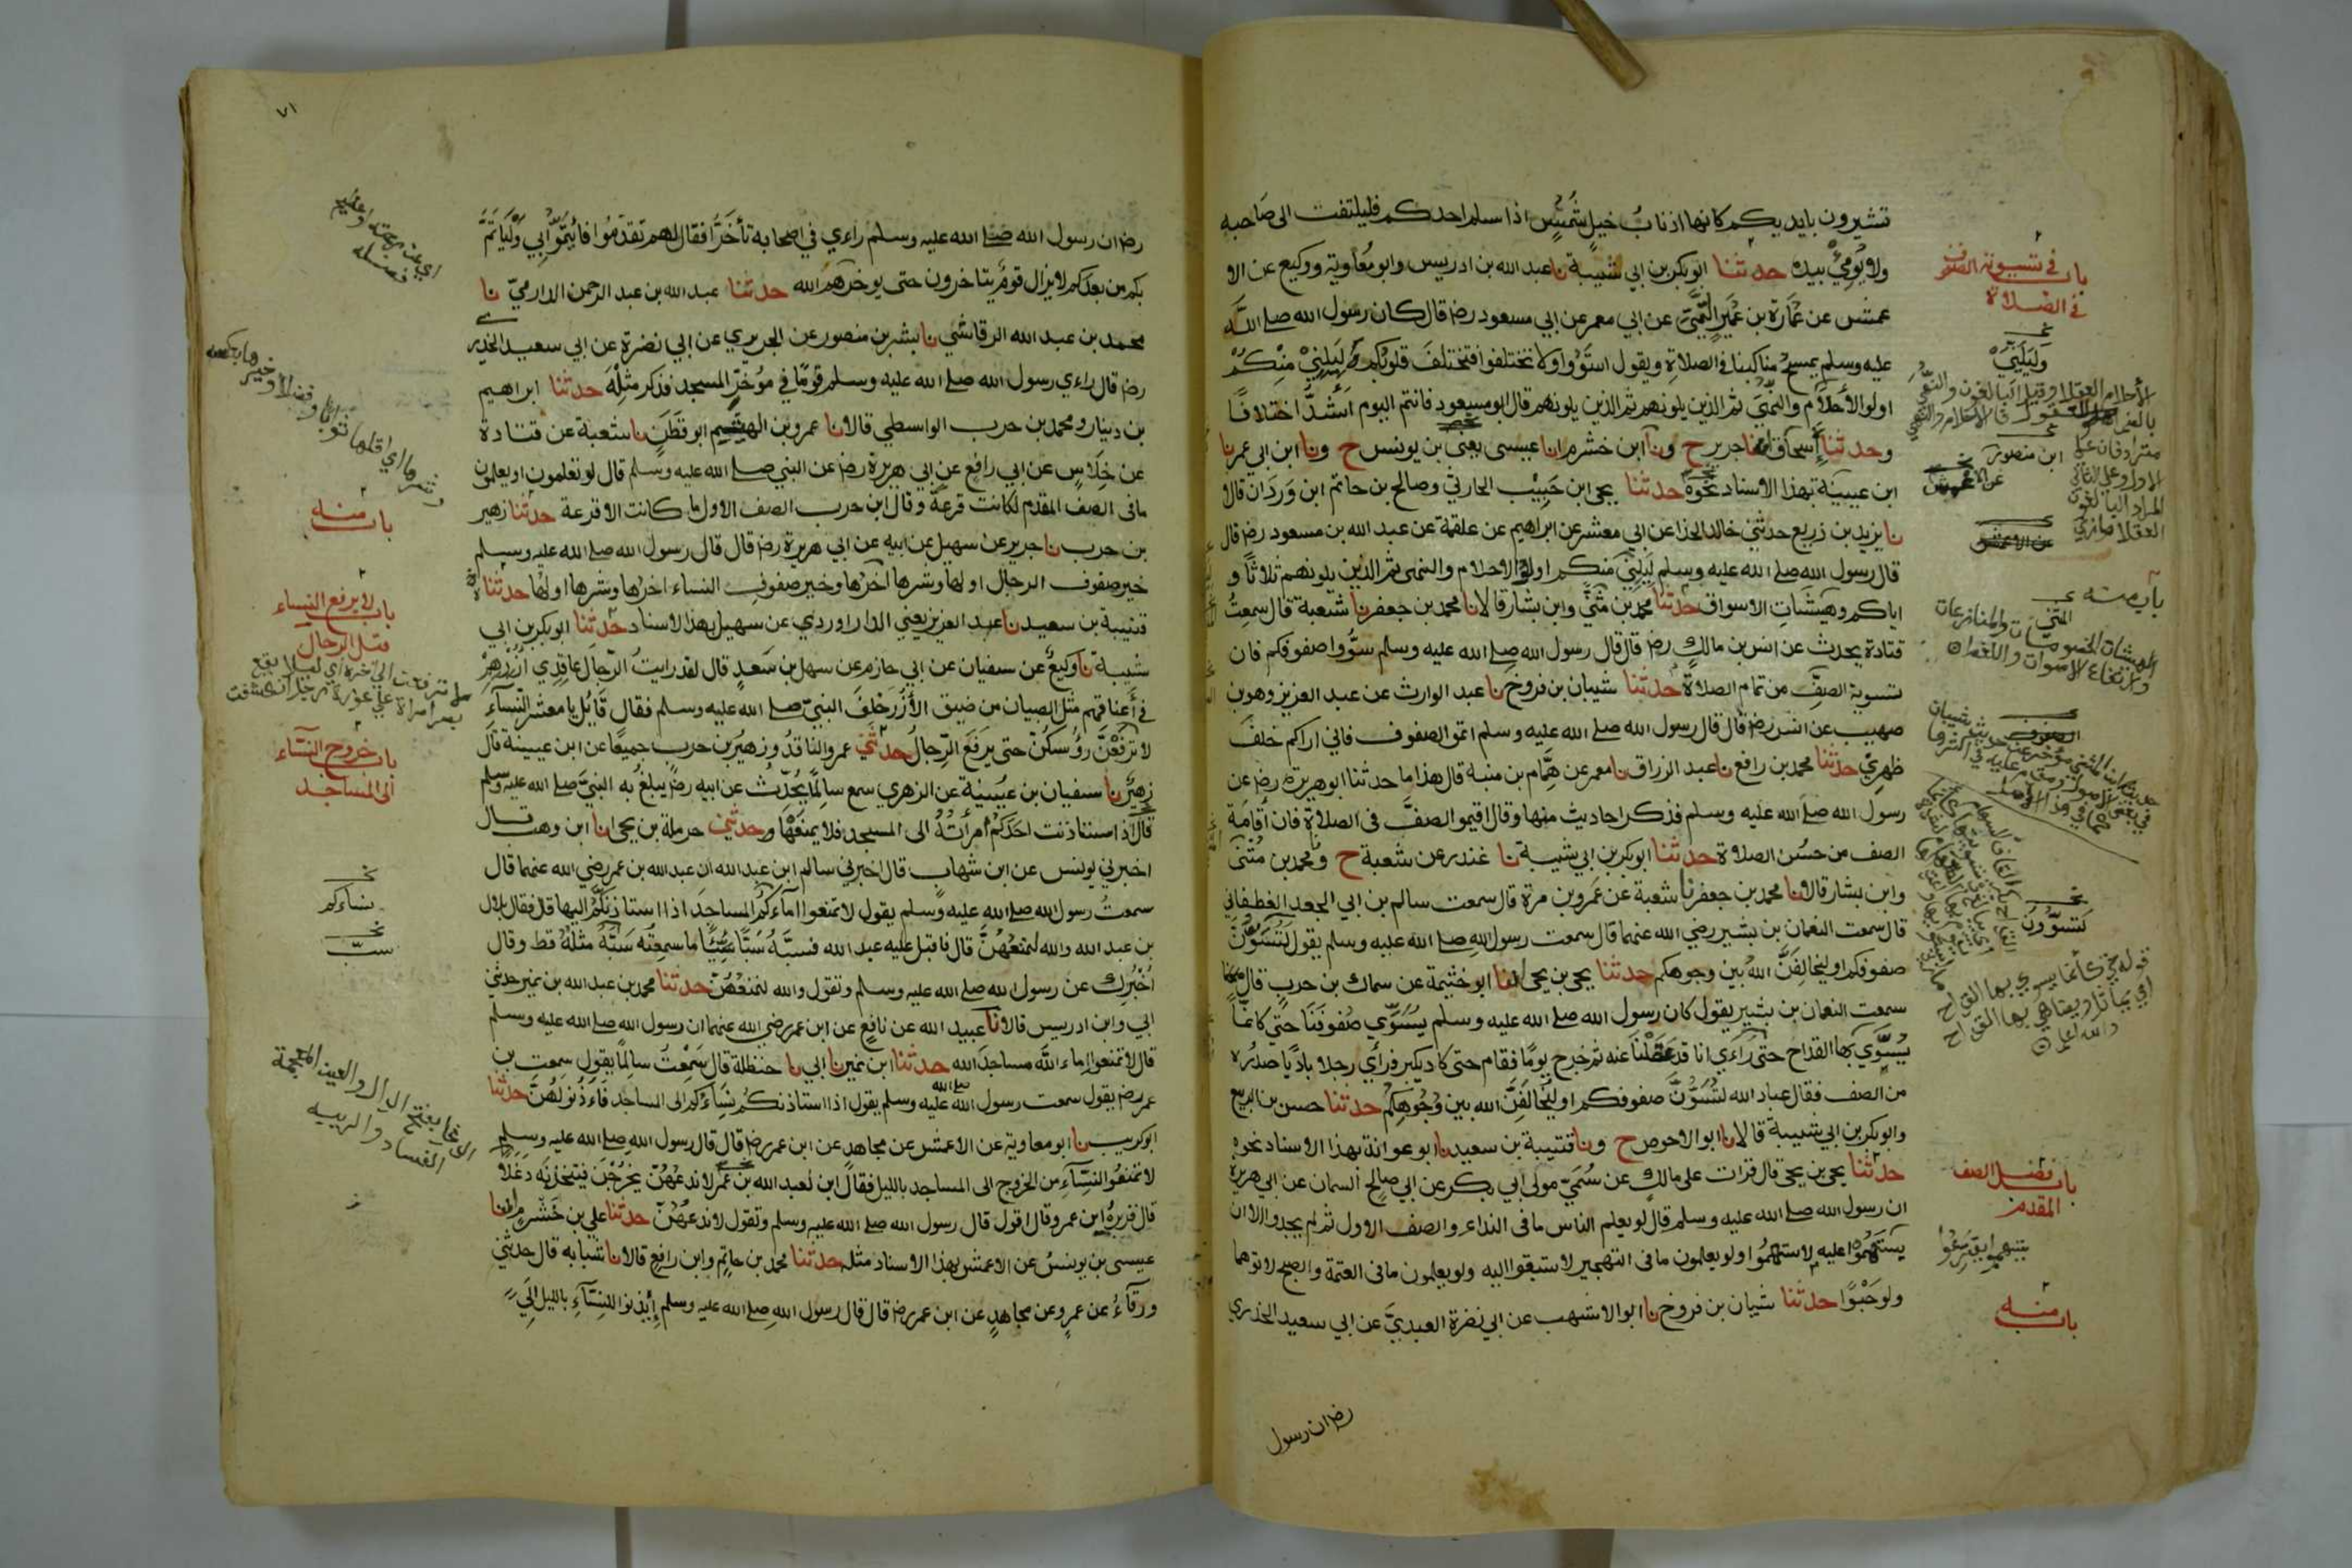 تشيرون بايديكم كانها اذناب خيل شُمُسٍ اذا سلم احدكم فليلتفت الى صَاحبه
ولا يُومِئُ بيده حدثنا ابو بكر بن ابي شيبة نا عبد الله بن ادريس وابو معاوية ووكيع عن الا
عمش عن عُمَارة بن عُمَيرٍ التَّيْمِيّ عن ابي معمر عن ابي مسعود رضـ قال كان رسول الله صلے الله
عليه وسلم يمسح مناكبنا في الصلاةِ ويقول استَوُوا ولا تختلفوا فتختلفَ قلوبُكم لِيَلِنِيْ مِنْكُمْ
اولوا الأحلام والنُّهَى ثم الذين يلونهم ثم الذين يلونهم قال ابو مسعودٍ فانتم اليوم اَشدُّ اختلافًا
وحدثنا إسحاق انا جرير ح ونا ابن خشرم انا عيسى يعنى بن يونس ح ونا ابن ابي عمر نا
ابن عيينة بهذا الاسناد نحوَه حدثنا يحيى ابن حَبِيْب الحارثي وصالح بن حاتم ابن وَردَان قالا
نا يزيد بن زريع حدثني خالد الحذا عن ابى معشر عن ابراهيم عن علقمة عن عبد الله بن مسعود رضـ قال
قال رسول الله صلے الله عليه وسلم لِيَلِنِيْ منكم اولوا الاحلام والنهى ثم الذين يلونهم ثلاثًا و
اياكم وهَيشَاتِ الاسواق حدثنا محمد بن مثنى وابن بشار قالا نا محمد بن جعفر نا شعبة قال سمعتُ
قتادة يحدث عن انس بن مالكٍ رضـ قال قال رسول الله صلے الله عليه وسلم سوُّوا صفوفكم فان
تسوية الصفّ من تمام الصلاة حدثنا شيبان بن فروخ نا عبد الوارث عن عبد العزيز وهو بن
صهيب عن انس رضـ قال قال رسول الله صلے الله عليه وسلم اتموا الصفوف فاني اراكم خلفَ
ظهري حدثنا محمد بن رافع نا عبد الرزاق نا معمر عن هَمَّام بن منبه قال هذا ما حدثنا ابو هريرة رضـ عن
رسول الله صلے الله عليه وسلم فذكر احاديث منها وقال اقيموا الصفَّ في الصلاةِ فان اقامَة
الصف من حسُن الصلاة حدثنا ابو بكر بن ابي شيبة نا غندر عن شعبة ح ونا محمد بن مثنى
وابن بشار قالا نا محمد بن جعفر نا شعبة عن عمرو بن مرة قال سمعت سالم بن ابي الجعد الغطفاني
قال سمعت النعمان بن بشير رضي الله عنهما قال سمعت رسول الله صلے الله عليه وسلم يقول لتُسَوُّنَّ
صفوفكم او ليخالفَنَّ اللهُ بين وجوهكم حدثنا يحيى بن يحيى انا ابو خيثمة عن سماك بن حربٍ قال
سمعت النعمان بن بشير يقول كان رسول الله صلے الله عليه وسلم يُسَوِّي صُفوفَنَا حتى كانمّا
يُسَوّي بها القداح حتى راَءَى انا قد عَقَلْنَا عنه ثم خرج يومًا فقام حتى كاد يكبر فرأي رجلا باديًا صدرُه
من الصف فقال عباد الله لَتُسَوُّنَّ صفوفكم او ليُخالفَنَّ الله بين وُجُوهِكُم حدثنا حسن بن الربيع
وابو بكر بن ابي شيبة قالا نا ابو الاحوص ح ونا قتيبة بن سعيد نا ابو عوانة بهذا الاسناد نحوه
حدثنا يحيى بن يحيى قال قرات على مالكٍ عن سُمَيّ مولى ابي بكر عن ابي صالح السمان عن ابي هريرة
ان رسول الله صلے الله عليه وسلم قال لو يعلم الناس ما في النداء والصف الاول ثم لم يجدوا الا ان
يستَهِمُوا عليه لاستهمُوا ولو يعلمون ما في التهجير لاستبقوا اليه ولو يعلمون ما في العتمة والصبح لاتوهما
ولو حَبْوًا حدثنا شيبان بن فروخ نا ابو الاشهب عن ابي نضرة العبديّ عن ابي سعيد الخدري
رضـ ان رسول
باب في تسوية الصفوف
في الصلاة
ابن منصور
باب منه
لتسوُّونَ
باب فضل الصف
المقدم
باب منه
٧١
رضـ ان رسول الله صلے الله عليه وسلم راءي في اصحابه تأخرًا فقال لهم تقدَّمُوا فائتمُّوا بي وَلْيَاتَمَّ
بكم من بعدكم لا يزال قومٌ يتاخرون حتى يوخرهم الله حدثنا عبد الله بن عبد الرحمن الدارميّ نا
محمد بن عبد الله الرقاشي نا بشر بن منصور عن الجريري عن ابي نضرة عن ابي سعيد الخدري
رضـ قال راءي رسول الله صلے الله عليه وسلم قومًا في مُؤخرِ المسجد فذكر مثلَه حدثنا ابراهيم
بن دينار ومحمد بن حرب الواسطي قالا نا عمرو بن الهيثم ابو قَطَنٍ نا شعبة عن قتادة
عن خِلَاسٍ عن ابي رافع عن ابي هريرة رضـ عن النبي صلے الله عليه وسلم قال لو تعلمون او يعلمون
ما في الصف المقدم لكانت قرعةً وقال ابن حرب الصف الاول ما كانت الا قرعة حدثنا زهير
بن حرب نا جرير عن سهيل عن ابيه عن ابي هريرة رضـ قال قال رسول الله صلے الله عليه وسلم
خير صفوف الرجال اولها وشرها آخرُها وخير صفوفِ النساء اخرُها وشرها اولها حدثناه
قتيبة بن سعيد نا عبد العزيز يعني الداراوردي عن سهيل بهذا الاسناد حدثنا ابو بكر بن ابي
شيبة نا وكيعٌ عن سفيان عن ابي حازم عن سهل بن سَعدٍ قال لقد رايتُ الرّجالَ عاقدِي اُزُرِهمْ
في أعناقهم مثل الصبيان من ضيق الأُزُر خلفَ النبيّ صلے الله عليه وسلم فقال قايل يا معشر النساءِ
لا ترفعْنَ رؤسكنّ حتى يرفَعَ الرِّجالُ حدثني عمرو الناقدُ وزهيرُ بن حرب جميعًا عن ابن عيينة قال
زهيرٌ نا سفيان بن عُيَيْنة عن الزهري سمع سالِمًا يُحدِّث عن ابيه رضـ يبلغُ به النبيَّ صلے الله عليه وسلم
قال اذا استاذنت احدَكُمُ امرأتُهُ الى المسجد فلا يمنعْهَا وحدثني حرملة بن يحيى انا ابن وهب قال
اخبرني يونس عن ابن شهابٍ قال اخبرني سالم ابن عبد الله ان عبد الله بن عمر رضي الله عنهما قال
سمعتُ رسول الله صلے الله عليه وسلم يقول لا تمنعوا اماَءكُمُ المساجدَ اذا استاذنَّكُم اليها قال فقال بلال
بن عبد الله والله لنمنعُهُنَّ قال فاقبل عليه عبد الله فسبَّهُ سَبًّا سَيِّئًا ما سمعتُه سَبَّهُ مثلَهُ قط وقال
اُخْبِرُك عن رسول الله صلے الله عليه وسلم وتقول والله لنمنعُهُنّ حدثنا محمد بن عبد الله بن نمير حدثني
ابي وابن ادريس قالا نا عبيد الله عن نافعٍ عن ابن عمر رضي الله عنهما ان رسول الله صلے الله عليه وسلم
قال لا تمنعوا اِماءَ الله مساجدَ الله حدثنا ابن نمير نا ابي نا حنظلة قال سَمِعْتُ سالِمًا يقول سمعت بن
عمر رضـ يقول سمعت رسول الله صلے الله عليه وسلم يقول اذا استاذنكُم نسَاؤكم الى المساجد فاَءذَنُو لهُنَّ حدثنا
ابو كريب نا ابو معاوية عن الاعمش عن مجاهدٍ عن ابن عمر رضـ قال قال رسول الله صلے الله عليه وسلم
لا تمنعُوا النّسَآءَ من الخروج الى المساجد بالليل فقال ابن لعبد الله بن عمر لا ندعُهُنّ يَخْرُجْنَ فيتخذنَه دَغَلاً
قال فزبرهُ ابن عمر وقال اقول قال رسول الله صلے الله عليه وسلم وتقول لا ندعُهُنّ حدثنا علي بن خَشْرمٍ انا
عيسى بن يونسُ عن الاعمش بهذا الاسناد مثله حدثنا محمد بن حاتم وابن رافعٍ قالا نا شبابه قال حدثني
ورقآءُ عن عمرٍو عن مجاهدٍ عن ابن عمر رضـ قال قال رسول الله صلے الله عليه وسلم إيذنوا للنسَآءِ بالليل الَي
باب منه
باب لا يرفع النساء
قبل الرجال
باب خروج النساء
الى المساجد
نساءكم
سبّ
الدغل بفتح الدال والغين المعجمة
الفساد والريبة